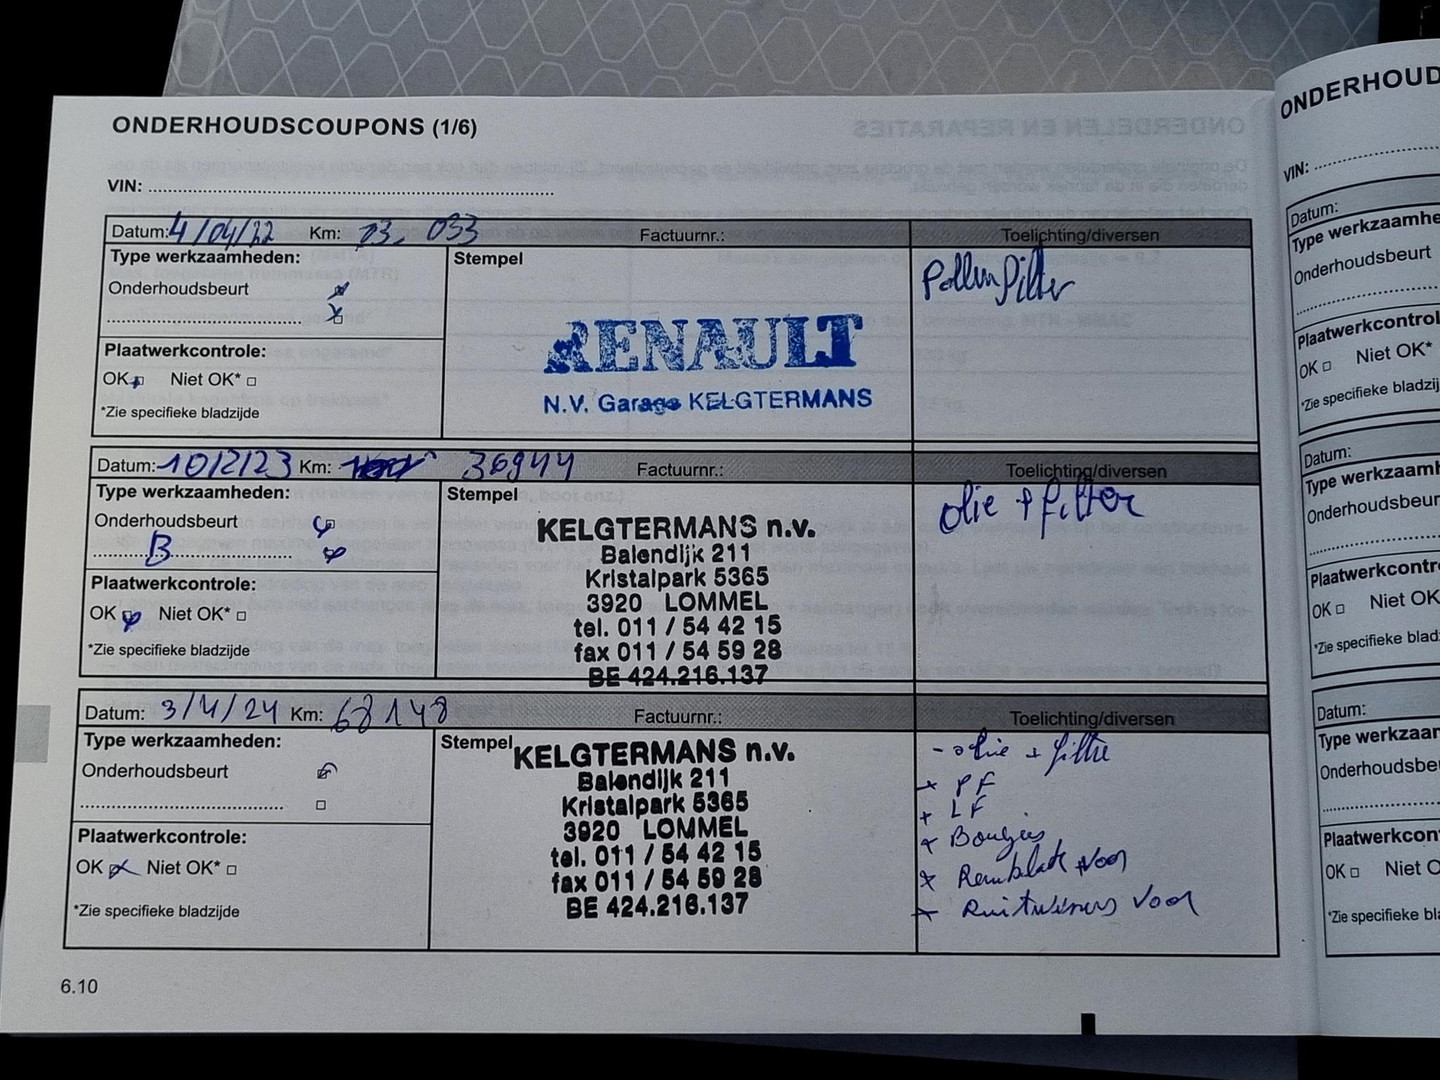 ONDERHOUDSCOUPONS (1/6)
VIN:
Datum: 4/04/22 Km: 23.033 Factuurnr.: Toelichting/diversen
Type werkzaamheden:
Stempel
Pollenfilter
Onderhoudsbeurt
RENAULT
N.V. Garage KELGTERMANS
Plaatwerkcontrole:
OK Niet OK*
*Zie specifieke bladzijde
Datum: 10/2/23 Km: 36944 Factuurnr.: Toelichting/diversen
Type werkzaamheden:
Stempel
olie + filter
Onderhoudsbeurt
B
KELGTERMANS n.v.
Balendijk 211
Kristalpark 5365
3920 LOMMEL
tel. 011 / 54 42 15
fax 011 / 54 59 28
BE 424.216.137
Plaatwerkcontrole:
OK Niet OK*
*Zie specifieke bladzijde
Datum: 3/4/24 Km: 68148 Factuurnr.: Toelichting/diversen
Type werkzaamheden:
Stempel
Onderhoudsbeurt
KELGTERMANS n.v.
Balendijk 211
Kristalpark 5365
3920 LOMMEL
tel. 011 / 54 42 15
fax 011 / 54 59 28
BE 424.216.137
- olie + filter
+ PF
+ LF
+ Bougies
+ Remblok voor
+ Ruitwissers voor
Plaatwerkcontrole:
OK Niet OK*
*Zie specifieke bladzijde
6.10
ONDERHOUD
VIN:
Datum:
Type werkzaamhe
Onderhoudsbeurt
Plaatwerkcontrol
OK Niet OK*
*Zie specifieke bladzij
Datum:
Type werkzaamh
Onderhoudsbeur
Plaatwerkcontr
OK Niet OK
*Zie specifieke blad
Datum:
Type werkzaar
Onderhoudsbe
Plaatwerkcon
OK Niet O
*Zie specifieke bla